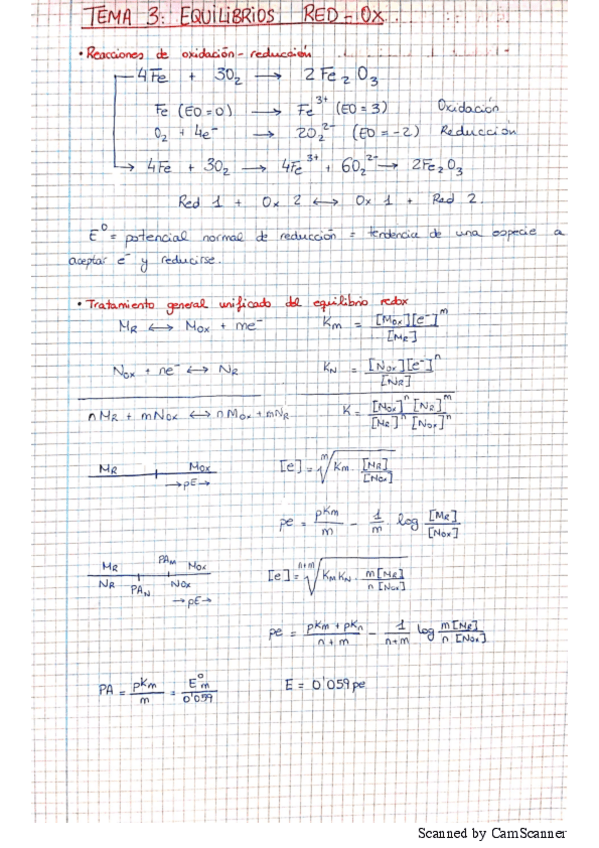 TEMA 3: EQUILIBRIOS RED-OX
• Reacciones de oxidación-reducción
4Fe + 3O₂ → 2Fe₂O₃
Fe (EO=0) → Fe³⁺ (EO=3) Oxidación
O₂ + 4e⁻ → 2O₂²⁻ (EO=-2) Reducción
4Fe + 3O₂ → 4Fe³⁺ + 6O₂²⁻ → 2Fe₂O₃
Red 1 + Ox 2 ↔ Ox 1 + Red 2.
E⁰ = potencial normal de reducción = tendencia de una especie a
aceptar e⁻ y reducirse.
• Tratamiento general unificado del equilibrio redox
M_R ↔ M_ox + me⁻ K_m = [M_ox][e⁻]^m / [M_R]
N_ox + ne⁻ ↔ N_R K_N = [N_ox][e⁻]^n / [N_R]
nM_R + mN_ox ↔ nM_ox + mN_R K = [N_ox]^n [N_R]^m / [M_R]^n [N_ox]^n
M_R M_ox [e] = ᵐ√(K_m · [N_R] / [N_ox])
→pE→
pe = pK_m / m - 1/m log [M_R] / [N_ox]
M_R PA_M N_ox
N_R PA_N N_ox [e] = ⁿ⁺ᵐ√(K_M K_N · m[N_R] / n[N_ox])
→pE→
pe = (pK_m + pK_n) / (n+m) - 1/(n+m) log m[N_R] / n[N_ox]
PA = pK_m / m = E⁰_m / 0'059 E = 0'059pe
Scanned by CamScanner